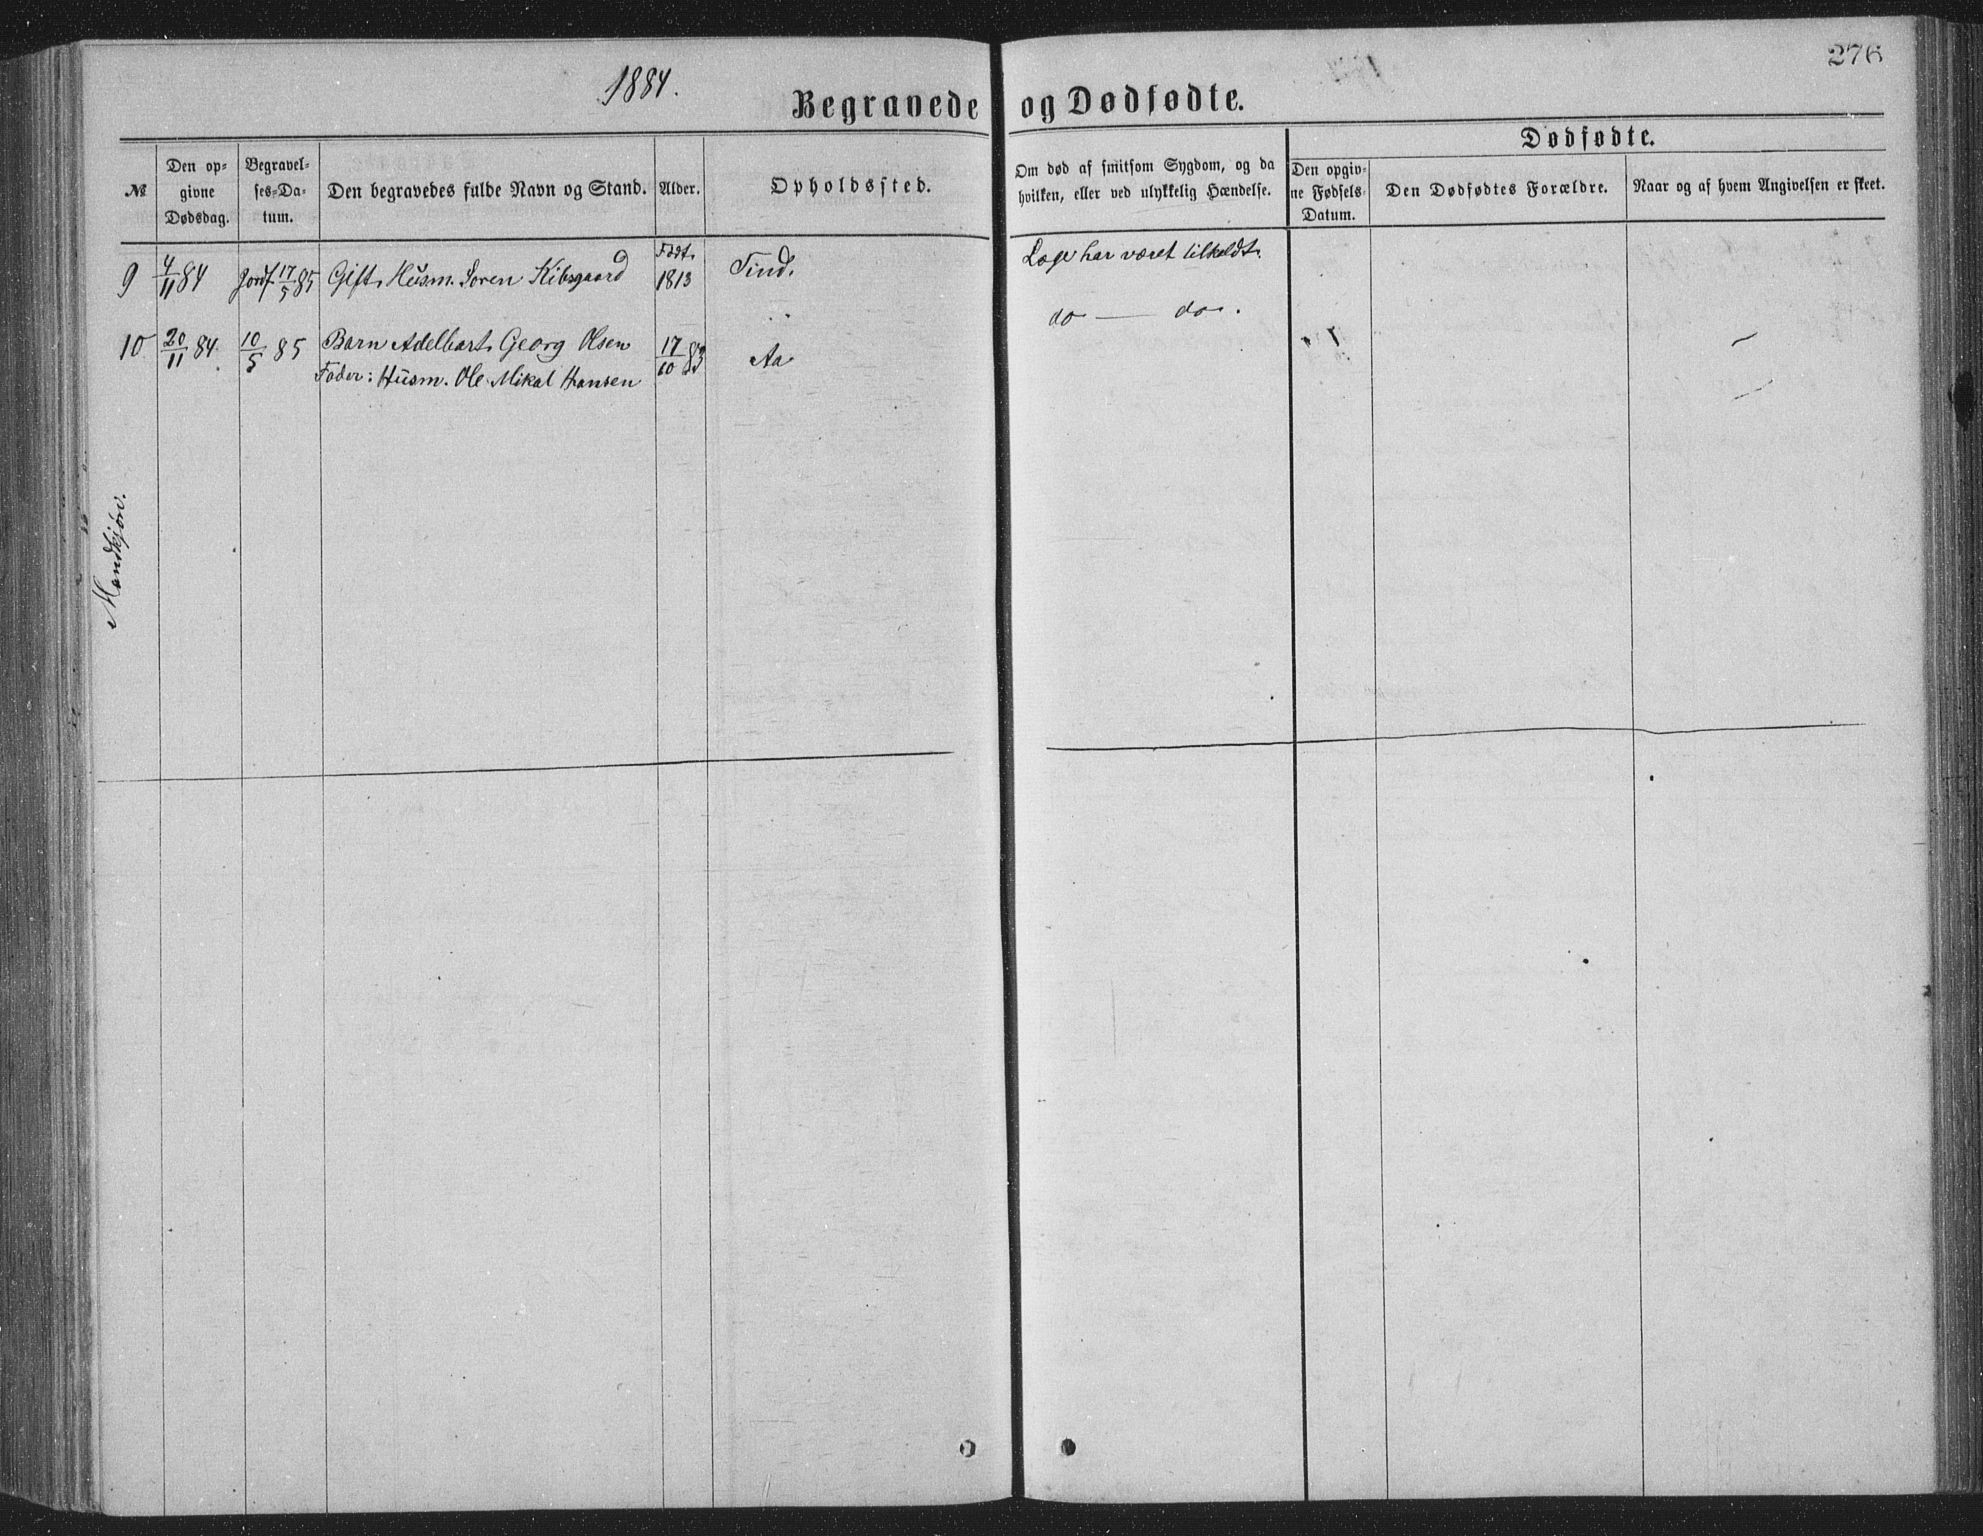 276
1884.
Begravede og Dødfødte.
Dødfødte.
№
Den op-
givne
Dødsdag.
Begravel-
ses-Da-
tum.
Den begravedes fulde Navn og Stand.
Alder.
Opholdssted.
Om død af smitsom Sygdom, og da
hvilken, eller ved ulykkelig Hændelse.
Den opgiv-
ne Fødsels-
Datum.
Den Dødfødtes Forældre.
Naar og af hvem Angivelsen er skeet.
9 4/11 84 Jordf. 17/5 85 Gift, Husm. Soren Kibsgaard Født 1813 Tind. Læge har været tilkaldt.
10 20/11 84. 10/5 85 Barn Adelbart Georg Olsen 17/10 83 Aa do — do.
Fader: Husm. Ole Mikal Hansen
Mandkjøn.